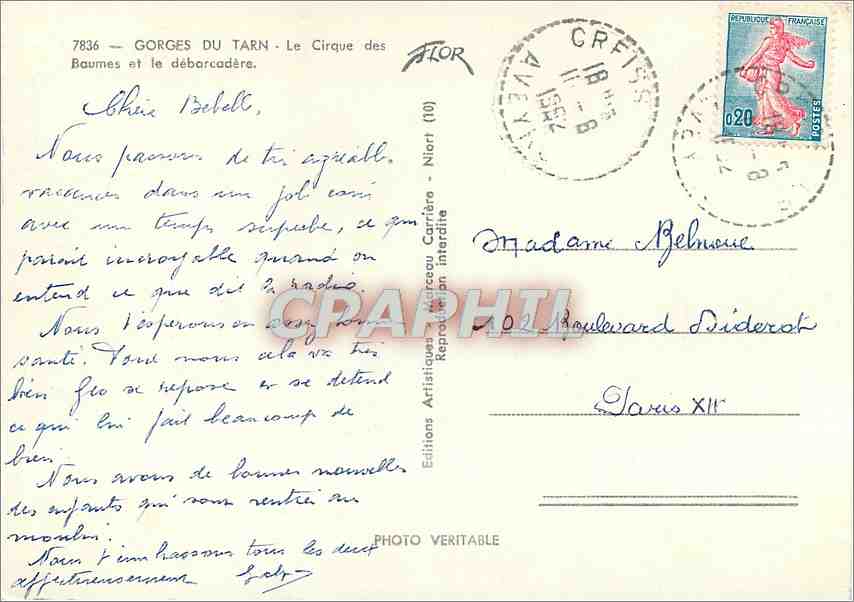 7836 — GORGES DU TARN - Le Cirque des
Baumes et le débarcadère.
FLOR
Chère Bebelle,
Nous passons de très agréables
vacances dans un joli coin
avec un temps superbe, ce qui
parait incroyable quand on
entend ce que dit la radio.
Nous t'espérons en assez bonne
santé. Pour nous cela va très
bien Geo se repose et se détend
ce qui lui fait beaucoup de
bien.
Nous avons de bonnes nouvelles
des enfants qui sont rentrés au
moulin.
Nous t'embrassons tous les deux
affectueusement
Editions Artistiques - Marceau Carrière - Niort (10)
Reproduction interdite
PHOTO VERITABLE
CREISS
AVEY
18 H
11 - 8
1961
REPUBLIQUE FRANÇAISE
0,20
POSTES
Madame Belnoue
102 Boulevard Diderot
Paris XII
CPAPHIL